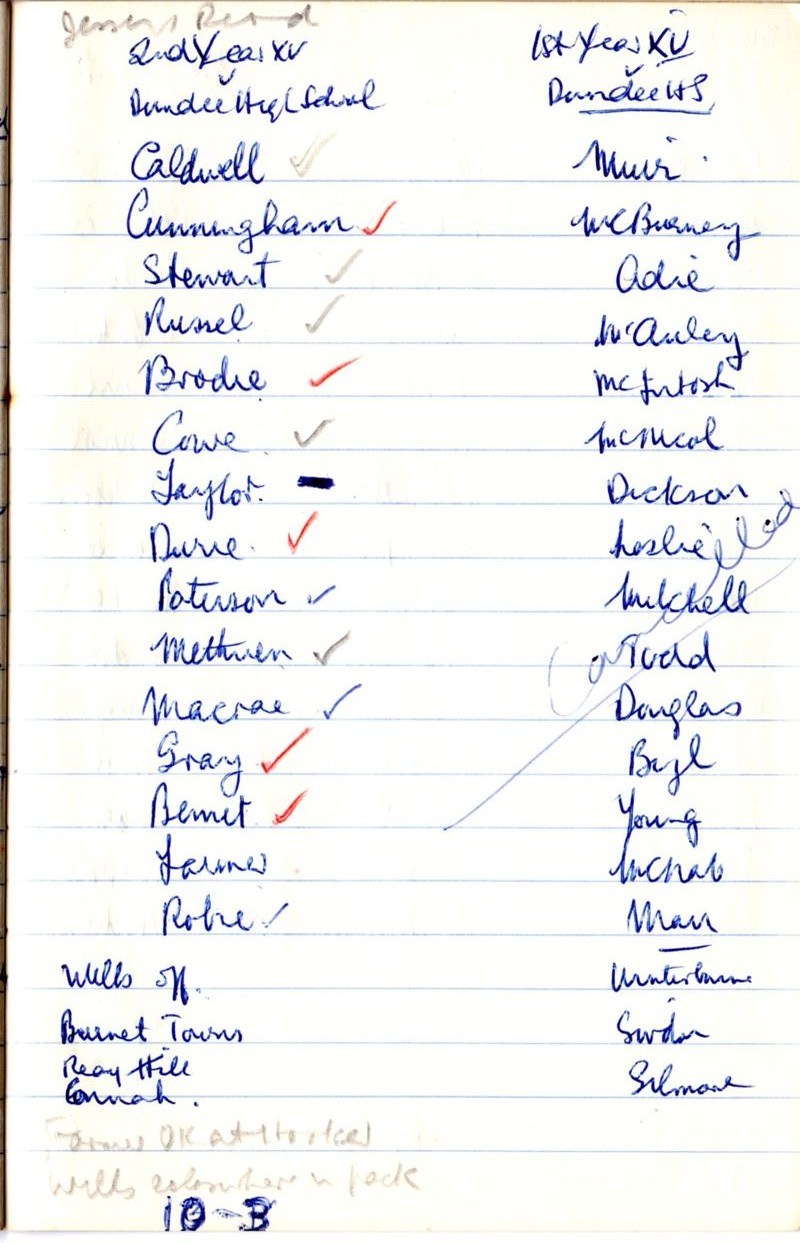 2nd Year XV
v
Dundee High School
Caldwell ✓
Cunningham ✓
Stewart ✓
Russel ✓
Brodie ✓
Cowe ✓
Taylor. –
Durie. ✓
Paterson ✓
Methven ✓
Macrae ✓
Gray ✓
Bennet ✓
Farmer
Robie ✓
Wells off.
Burnet Towns
Reay Hill
Connah.
Farmer OK at Hooker
Wells elsewhere in pack
10-3
1st Year XV
v
Dundee HS
Muir
McBurney
Adie
McAuley
McIntosh
McNicol
Dickson
Leslie
Mitchell
Todd
Douglas
Young
McNab
Marr
Winterburne
Gilmore
Cancelled